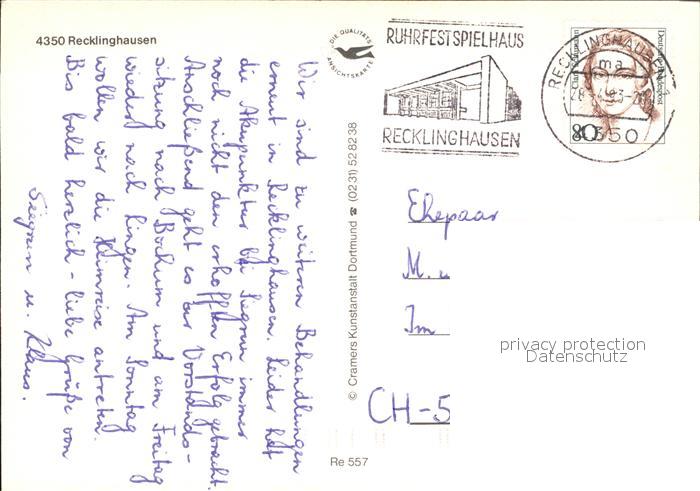 4350 Recklinghausen
DIE QUALITÄTS
ANSICHTSKARTE
Wir sind zu weiteren Behandlungen
erneut in Recklinghausen. Leider hat
die Akupunktur bei Siegrun immer
noch nicht den erhofften Erfolg gebracht.
Anschließend geht es zur Vorstands-
sitzung nach Bochum und am Freitag
wieder nach Lingen. Am Sonntag
wollen wir die Heimreise antreten.
Bis bald herzlich - liebe Grüße von
Siegrun u. Klaus.
© Cramers Kunstanstalt Dortmund ☎ (0231) 528238
Re 557
RUHRFESTSPIELHAUS
RECKLINGHAUSEN
RECKLINGHAUSEN
ma
4350
Deutsche Bundespost
80
Ehepaar
M. u
Im
CH-5
privacy protection
Datenschutz